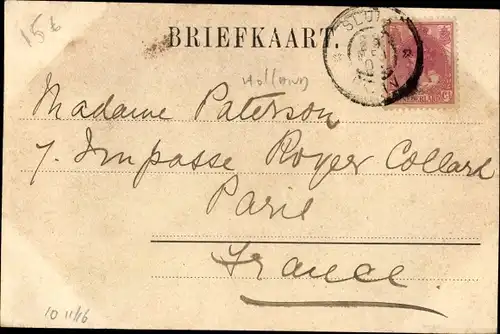 15 t
BRIEFKAART.
SLUIS
Holland
NEDERLAND
Madame Paterson
7. Impasse Royer Collard
Paris
France.
10 11/16